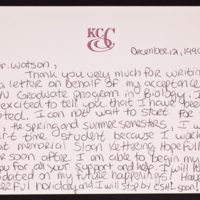 KCS
December 12, 199
Dr. Watson,
Thank you very much for writing
a letter on behalf of my acceptance
Graduate program in Biology. I
excited to tell you that I have been
pted. I can not wait to start. For
, the spring and summer semesters, I w
art time student because I work
at Memorial Sloan Kettering. Hopefull
soon after I am able to begin my
you for all your support and help. I will
updated on my future happenings! Hav
erful holiday and I will stop by CSHL soon!